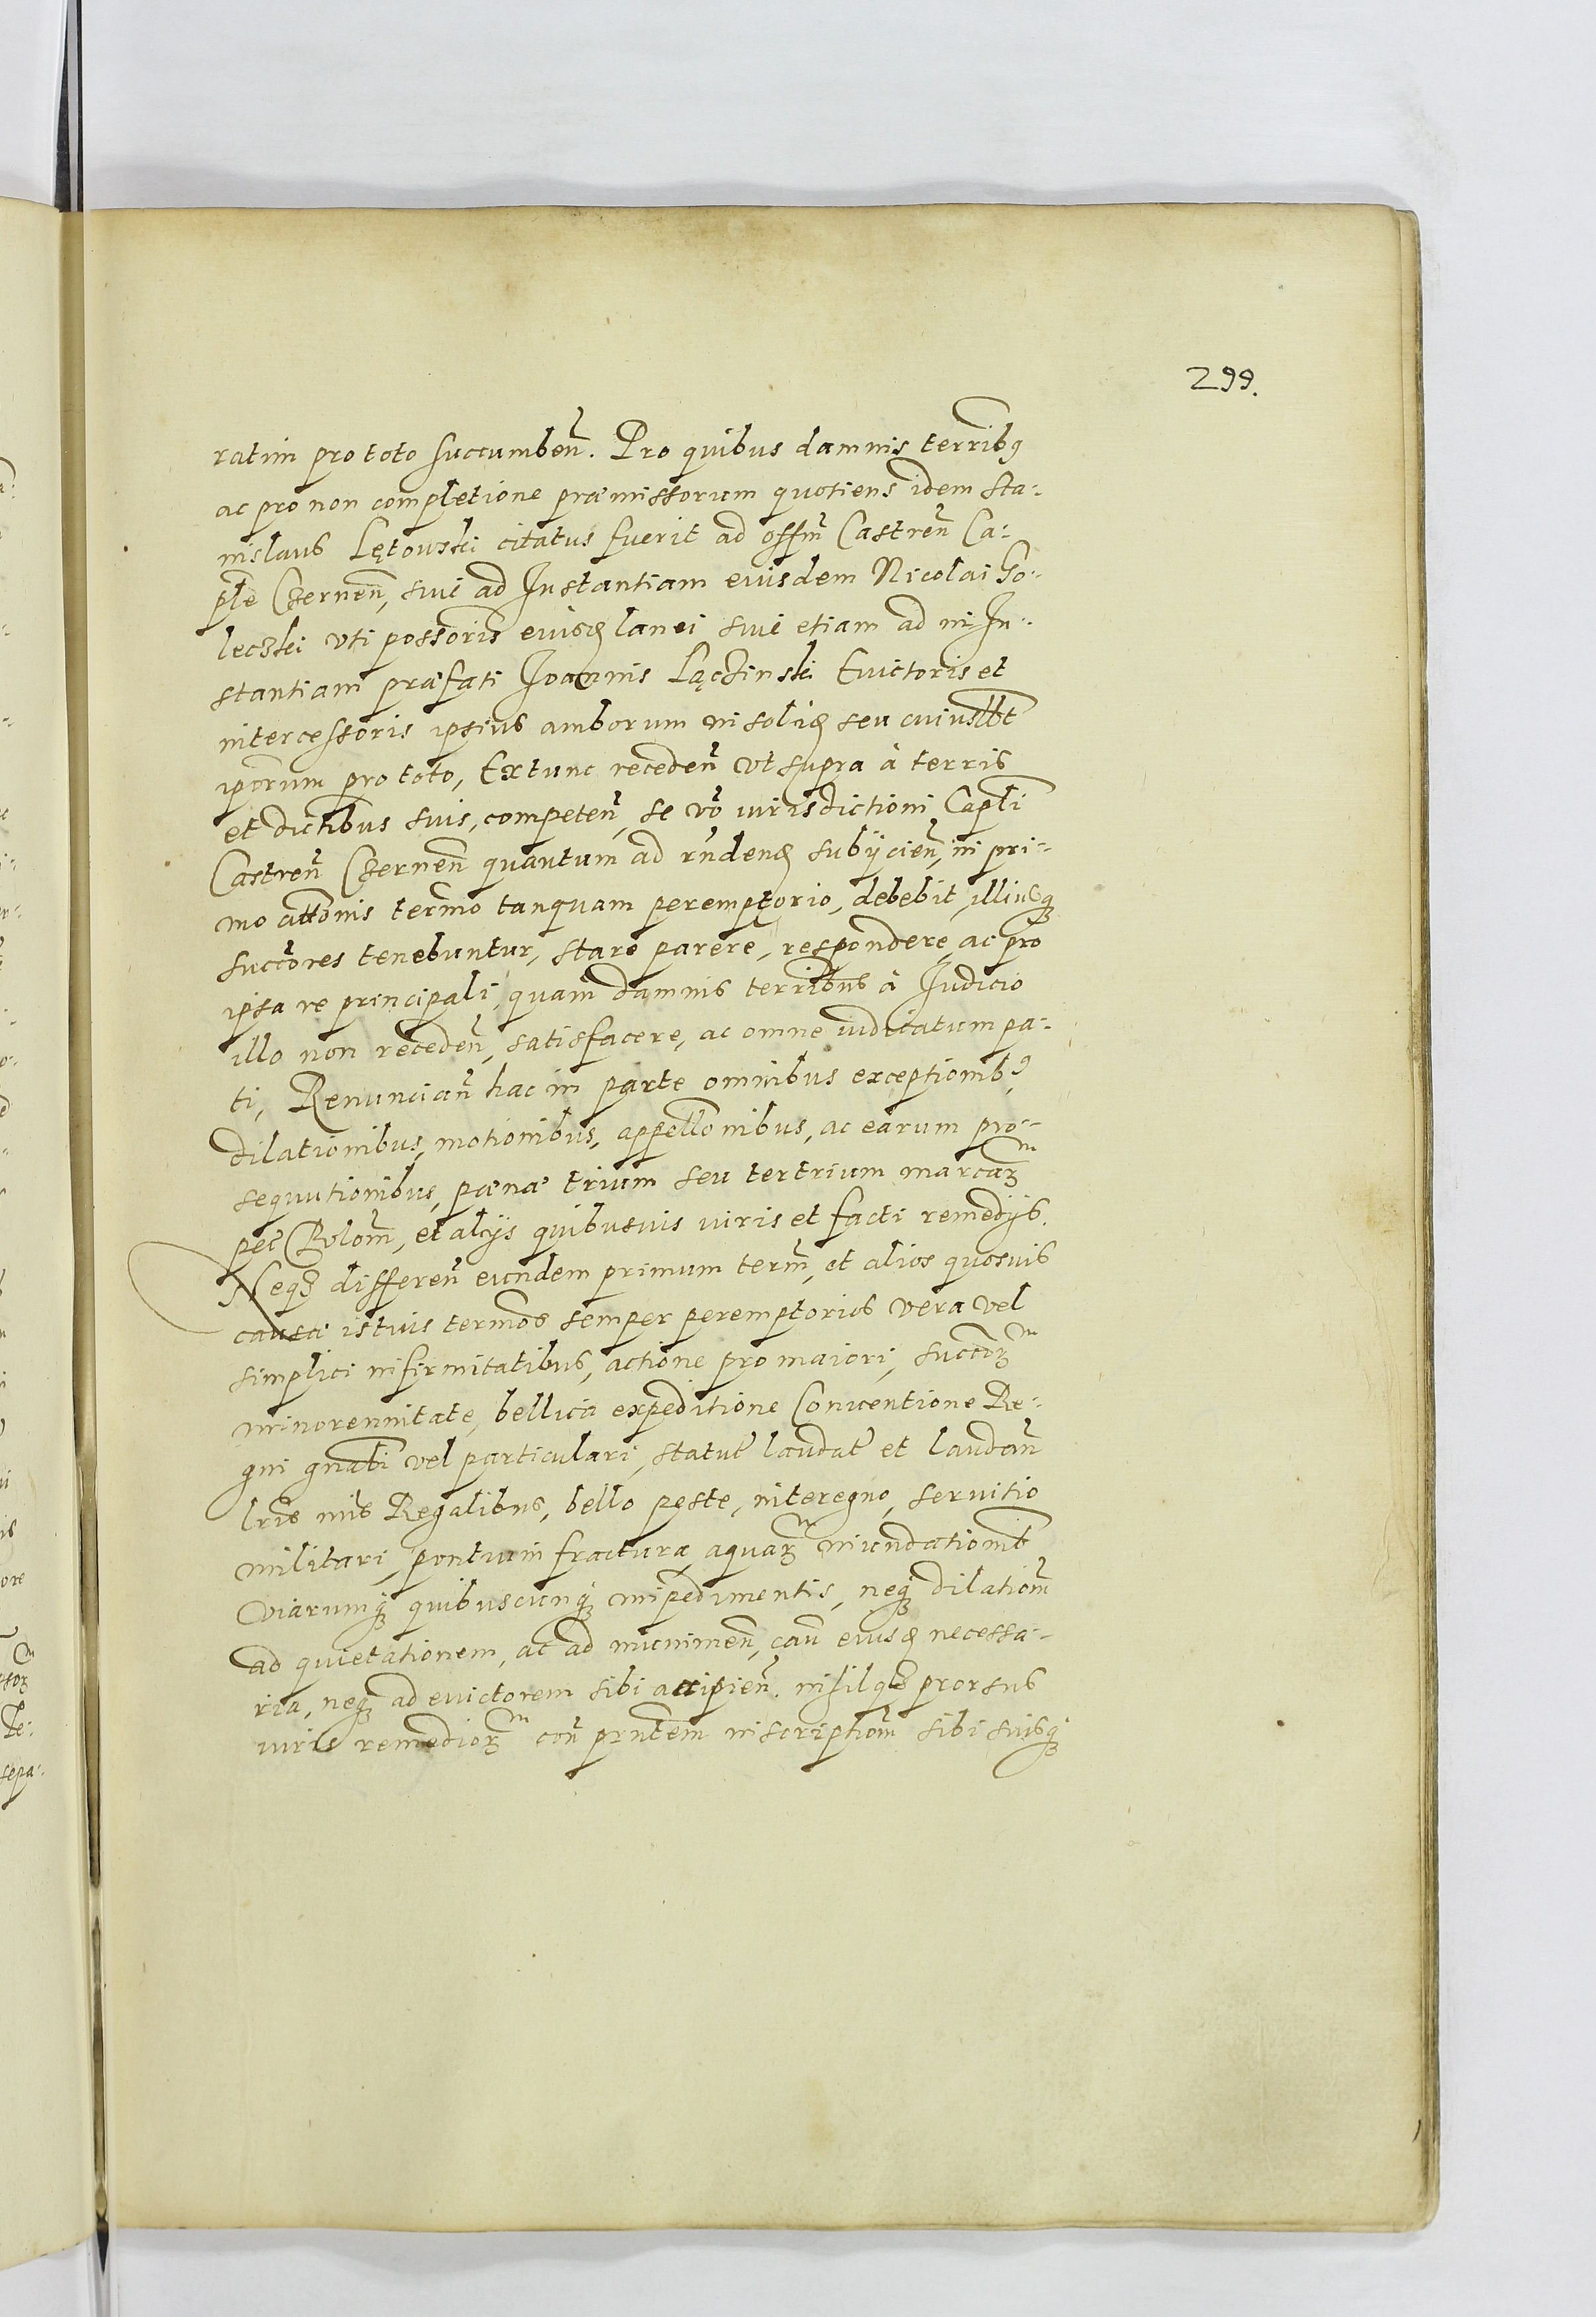 299.
ratim pro toto succumben̄. Pro quibus damnis terribꝯ
ac pro non completione præmissorum quotiens idem Sta-
nislaus Lętowski citatus fuerit ad offm̄ Castren̄ Ca-
ple Czernen̄, siue ad Instantiam eiusdem Nicolai Go-
leczki vti possoris eiusꝺ lanei siue etiam ad in In-
stantiam præfati Joannis Lączinski Euictoris et
intercessoris ipsius amborum in solidꝫ seu cuiuslibt̄
ipōrum pro toto, Extunc receden̄ vt supra à terris
et dictibus suis, competen̄, se vō iurisdictioni Capli
Castren̄ Czernen̄ quantum ad rn̄dendꝫ subijcien̄, in pri-
mo attonis termo tanquam peremptorio, debebit, illiusqꝫ
succōres tenebuntur, stare parere, respondere, ac pro
ipsa re principali, quam damnis terribus à Judicio
illo non receden̄, satisfacere, ac omne iudicatum pa-
ti, Renuncian̄ hac in parte omnibus exceptionibꝯ
dilationibus, motionibus, appellonibus, ac earum pro-
sequutionibus, pænæ trium seu tertrium marcarꝫ
pec̄ Polom̄, et alijs quibusuis iuris et facti remedijs.
Neqꝫ differen̄ eundem primum term̄, et alios quosuis
causæ istius termos semper peremptorios vera vel
simplici infirmitatibus, actione pro maiori, succorꝫ
minorennitate, bellica expeditione Conuentione Re-
gni gnali vel particulari, statut̄ laudat̄ et laudan̄
lris mis Regalibus, bello peste, interegno, seruitio
militari, pontium fractura, aquarꝫ inundationibt̄
Viarumqꝫ quibuscunqꝫ impedimentis, neqꝫ dilationm̄
ad quietationem, ac ad munimen̄, cau̅ eiusꝺ necessa-
ria, neqꝫ ad euictorem sibi accipien̄. nihilqꝫ prorsus
iuris remediorꝫ con̄ prn̄tem inscriptionm̄ sibi suisqꝫ